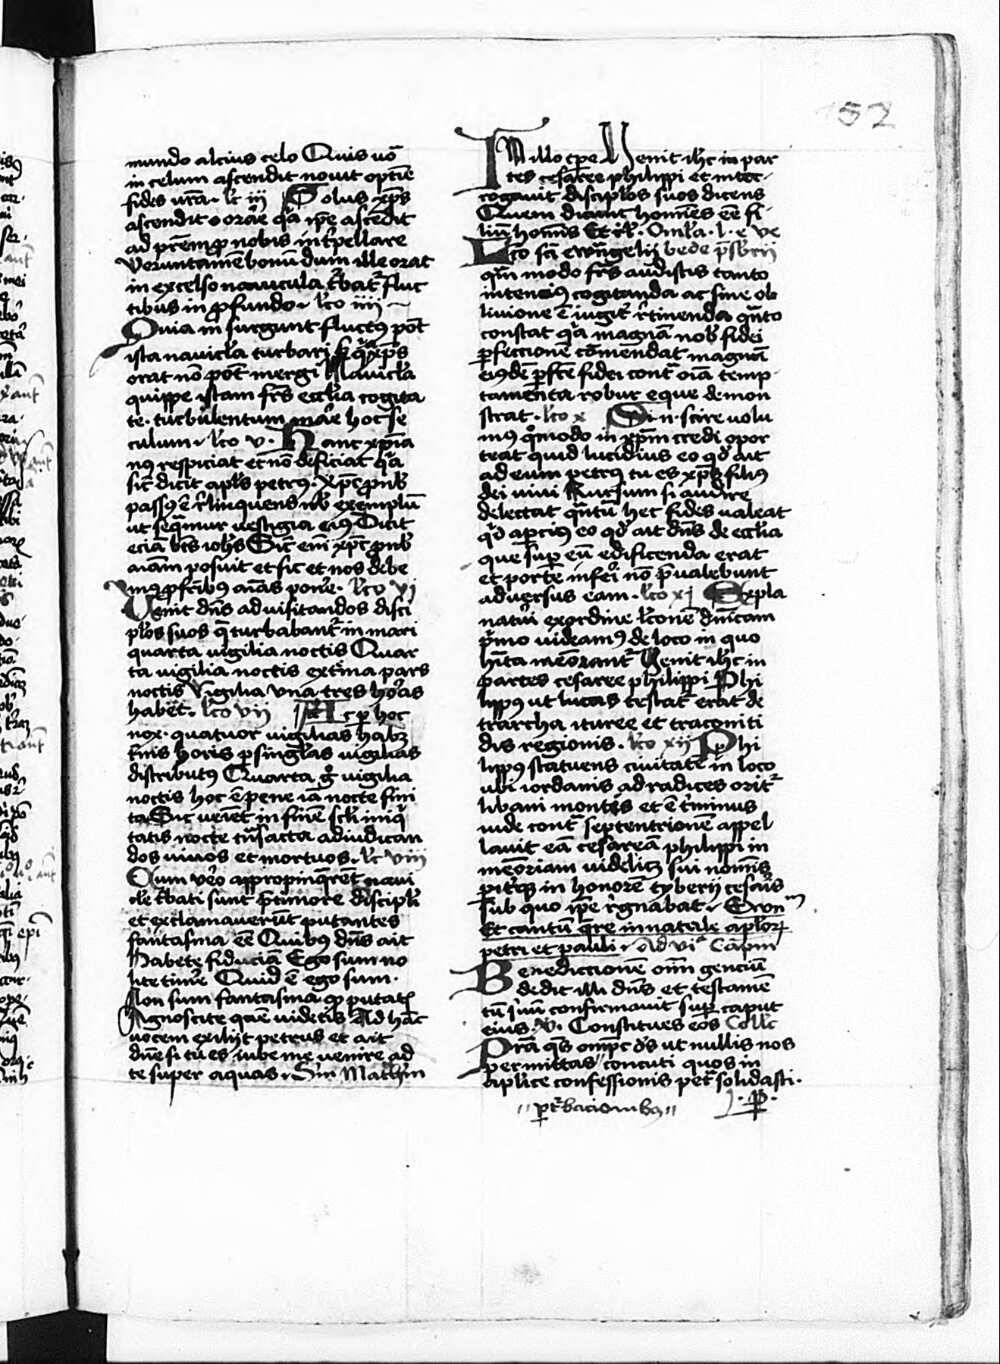 152
mundo alcius celo Quis uō
in celum ascendit nouit optīe
fides vr̄a · lc̄ iij Solus xp̄s
ascendit orāe qa ip̄e ascēdit
ad prēm ꝓ nobis int̄pellare
Veruntamē bonū dum ille orat
in excelso nauicula t̄bat᷑ fluc
tibus in ꝓfundo · lc̄o iiij
Quia insurgunt fluctꝰ pōt
ista nauicl̄a turbari s; qa xp̄s
orat nō pōt mergi Nauicl̄a
quippe istam frs̄ eccl̄ia cogita
te · turbulentum mar̄e hoc se
culum · lc̄o v · Hanc xp̄ia
nꝰ respiciat et nō deficiat qa
sic̄ dicit apl̄s petrus · xp̄c ꝓ nob̄
passꝰ ē r̄linquens nob̄ exemplū
ut seqm̄ur uestigia eiꝰ Dicit
eciā bt̄s ioh̄s Sic̄ enī xp̄c ꝓ nob̄
aīam posuit et sic et nos debe
mꝰ ꝓ fr̄ibꝰ aīas pon̄e · lc̄o vj
Uenit dn̄s ad uisitandos disci
pl̄os suos q̄ turbabant᷑ in mari
quarta uigilia noctis Quar
ta uigilia noctis ext̄ma pars
noctis Vigilia vna tres hor̄as
habēt · lc̄o vij Ac ꝑ hoc
nox · quatuor uigilias habꝫ
t̄nis horis ꝑ singl̄as uigilias
distributꝰ Quarta ḡ vigilia
noctis hoc ē pene iā nocte fini
ta Sic ueīet in finē scl̄i iniq
tatis nocte tn̄sacta ad iudican
dos uiuos et mortuos · lc̄ viij
Cum ūo appropinqr̄et naui
cl̄e t̄bati sunt p̄ timore discipl̄i
et exclamauerūt putantes
fantasma eē̄ Quibꝰ dn̄s ait
Habete fiduciā Ego sum no
lite tim̄e Quid ē ego sum ·
Non sum fantasma qd̄ putatꝭ
Agnoscite quē uidetis Ad hāc
vocem exilijt petrus et ait
dn̄e si tu es iube me uenire ad
te super aquas · Sm̄ Math̄m
IN illo tp̄e Uenit ih̄c in par
tes cesaree philippi et inter
rogauit discipl̄os suos dicens
Quem dicūt homīes eē̄ fi
liū homīs Et rl̄ · Oml̄a · l · e ve
Lc̄o sc̄i ewn̄gelij bede p̄sbr̄ij
qm̄ modo frs̄ audistis tanto
intenciꝰ cogitanda ac sine ob
liuione ē iugit᷑ r̄tinenda qn̄to
constat qa magnā nob̄ fidei
ꝑfeccionē cōmendat magnā
eiꝰdē ꝑfc̄e fidei cont᷑ oīa temp
tamenta robur eque demon
strat · lc̄o x Si · n · scire uolu
mꝰ qomodo in xp̄m credi opor
teat quid lucidius eo qd̄ ait
ad eum petrus tu es xp̄s filiꝰ
dei uiui Rursum si audīre
delectat qn̄tū hec fides ualeat
qd̄ apciꝰ eo qd̄ ait dn̄s de eccl̄ia
que sup̄ eū edificenda erat
et porte inferi nō p̄ualebunt
aduersus eam · lc̄o xj Expla
naturi exordine lc̄onē dn̄icam
p̄mo uideamꝰ de loco in quo
hīta memorant᷑ Uenit ih̄c in
partes cesaree philippi Phi
lippꝰ ut lucas testat᷑ erat de
trarcha ituree et traconiti
dis regionis · lc̄o xij Phi
lippꝰ statuens ciuitatē in loco
ubi iordanis ad radices orit᷑
libani montis et ē t̄minus
iude cont᷑ septentrionē appel
lauit eā cesareā philippi in
memoriam uidelicꝫ sui nomīs
pit̄qꝫ in honorē tyberij cesaīs
sub quo ip̄e r̄gnabat · Ewn̄m
Et cantū qr̄e in natale apl̄oꝝ
petri et pauli · Ad vja Capm̄
Benediccionē om̄m genciū
dedit illi dn̄s et testamē
tū suū confirmauit sup̄ caput
eius · V · Constitues eos Collc̄
Pr̄a qs̄ omp̄c ds̄ ut nullis nos
permittas concuti quos in
aplīce confessionis pet᷑ solidasti ·
ꝑt᷑bacionibꝰ